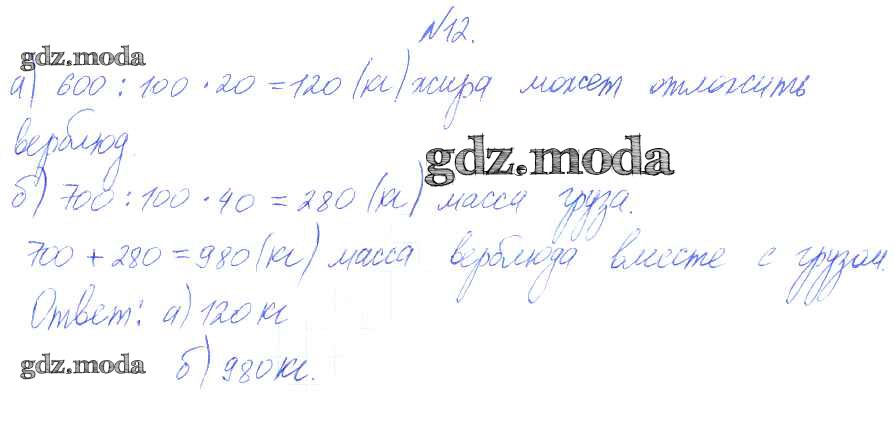 №12.
gdz.moda
а) 600 : 100 · 20 = 120 (кг) жира может отложить
верблюд.
gdz.moda
б) 700 : 100 · 40 = 280 (кг) масса груза.
700 + 280 = 980 (кг) масса верблюда вместе с грузом.
Ответ: а) 120 кг
gdz.moda
б) 980 кг.